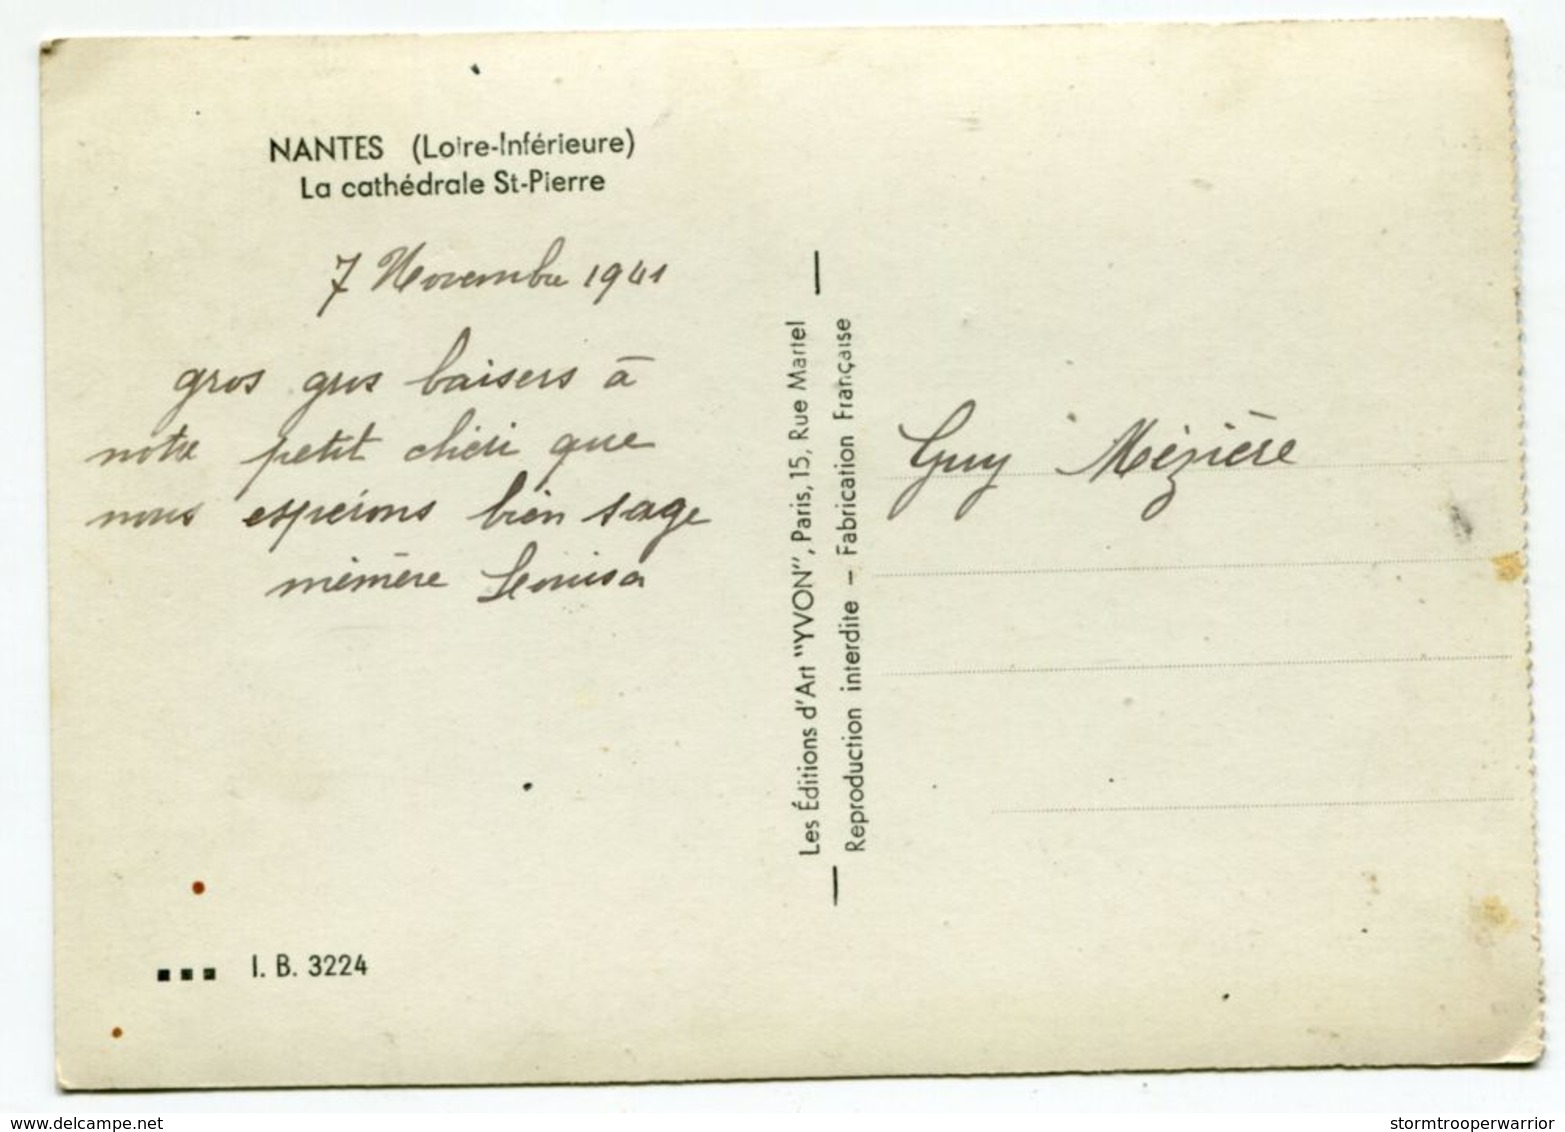 NANTES (Loire-Inférieure)
La cathédrale St-Pierre
7 Novembre 1941
gros gros baisers à
notre petit chéri que
nous espérons bien sage
mémère Louisa
I. B. 3224
Les Éditions d'Art "YVON", Paris, 15, Rue Martel
Reproduction interdite – Fabrication Française
Guy Mézière
www.delcampe.net
stormtrooperwarrior